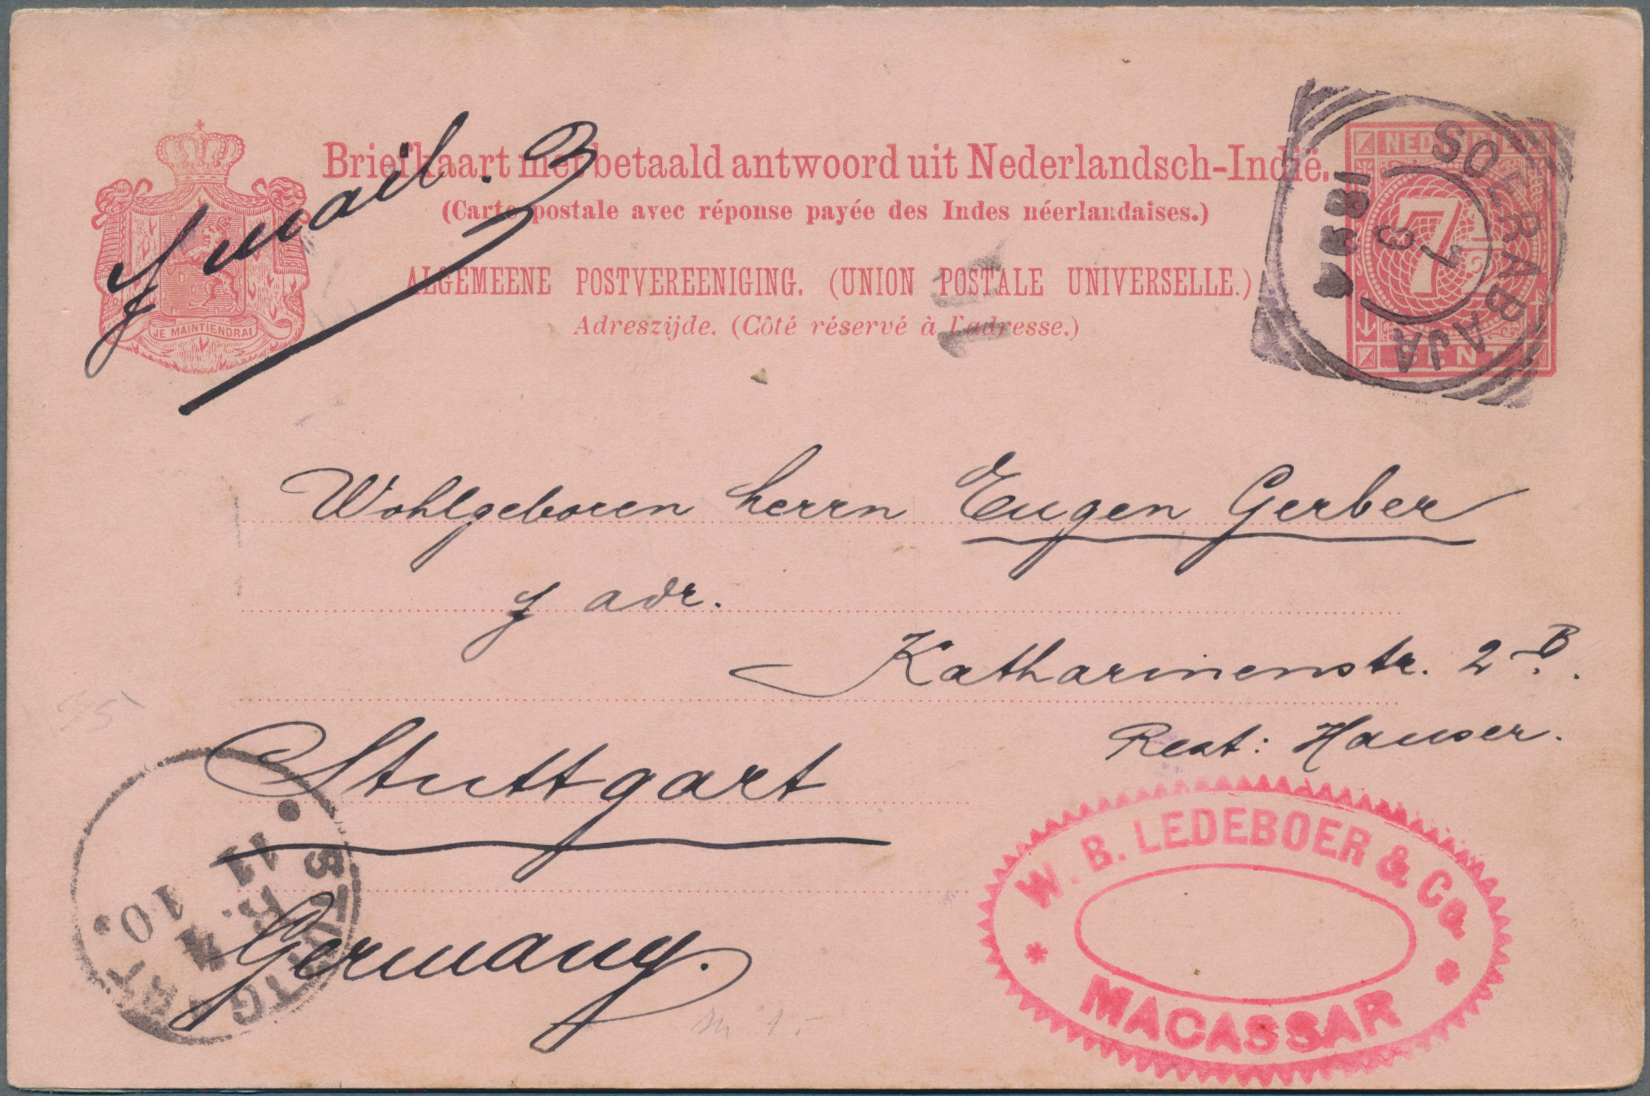 Briefkaart met betaald antwoord uit Nederlandsch-Indië.
(Carte postale avec réponse payée des Indes néerlandaises.)
ALGEMEENE POSTVEREENIGING. (UNION POSTALE UNIVERSELLE.)
Adreszijde. (Côté réservé à l'adresse.)
JE MAINTIENDRAI
mail.
7
CENT
SOERABAJA
Wohlgeboren herrn Eugen Gerber
adr.
Katharinenstr. 2 B.
Rest: Hauser.
Stuttgart
Germany.
STUTTGART
11
10
W. B. LEDEBOER & Co.
MACASSAR